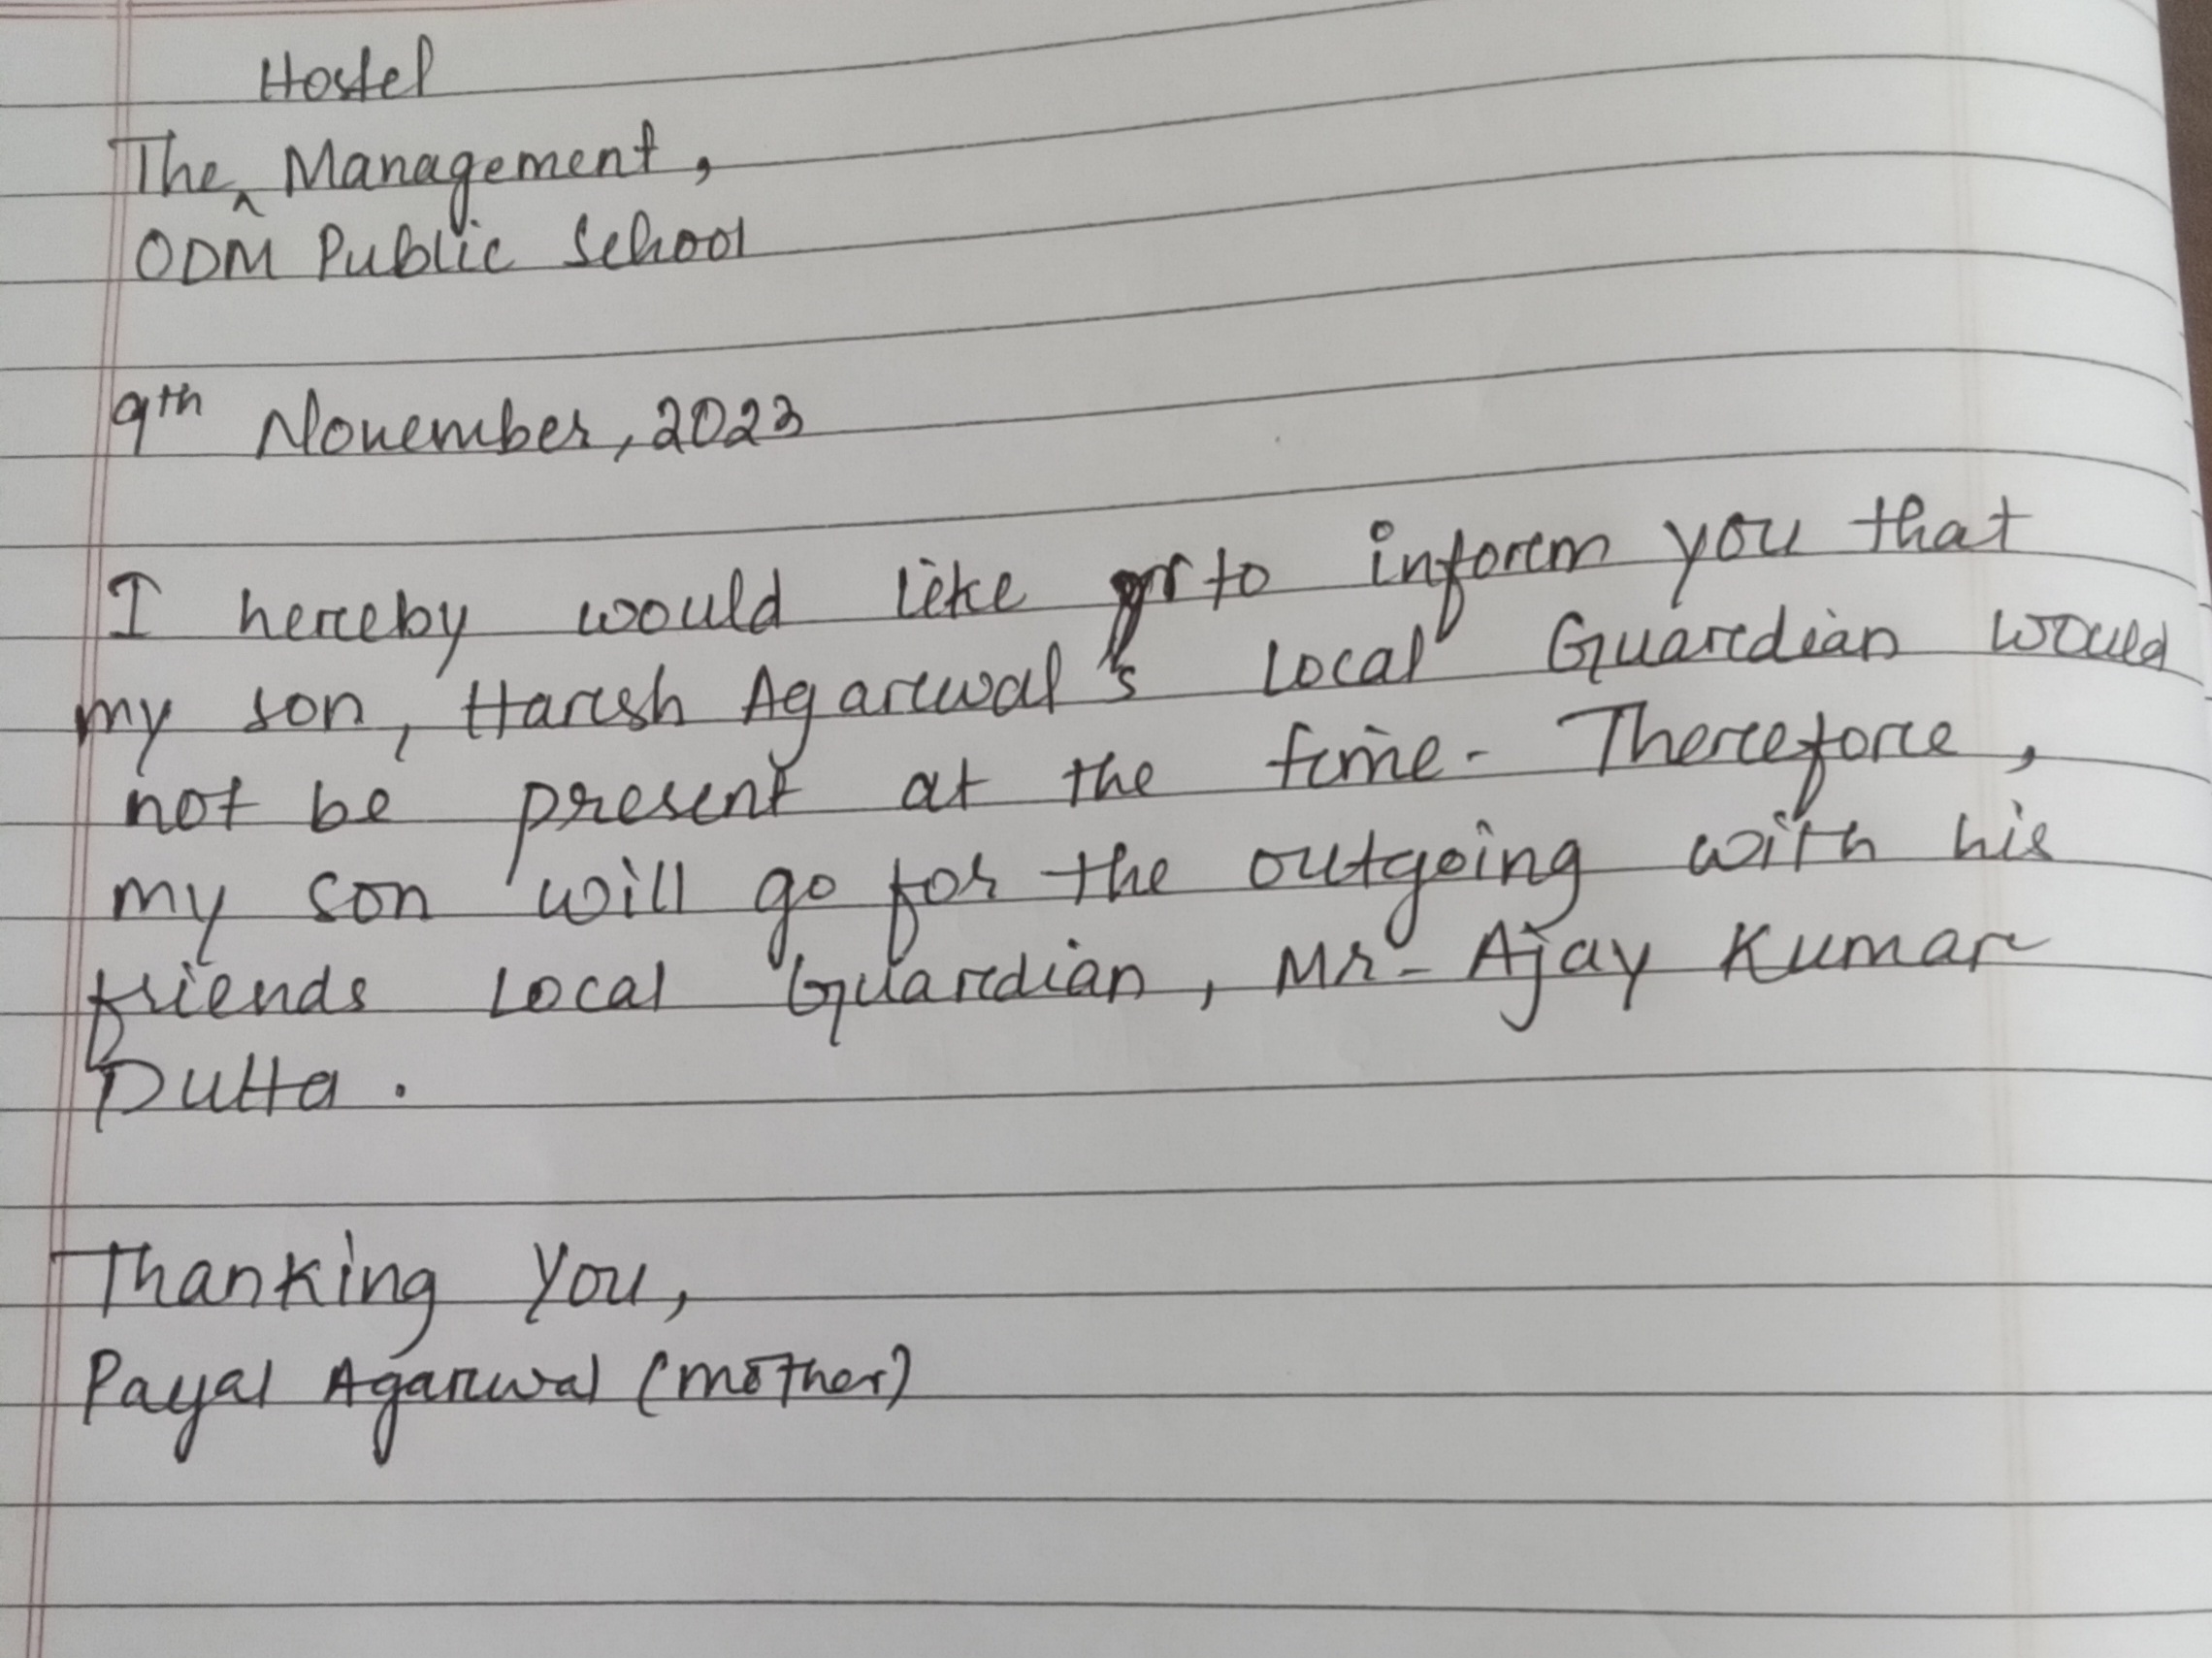 Hostel
The ^ Management,
ODM Public School
9th November, 2023
I hereby would like to inform you that
my son, Harsh Agarwal's Local Guardian would
not be present at the time. Therefore,
my son will go for the outgoing with his
friends Local Guardian, Mr. Ajay Kumar
Dutta.
Thanking You,
Payal Agarwal (mother)